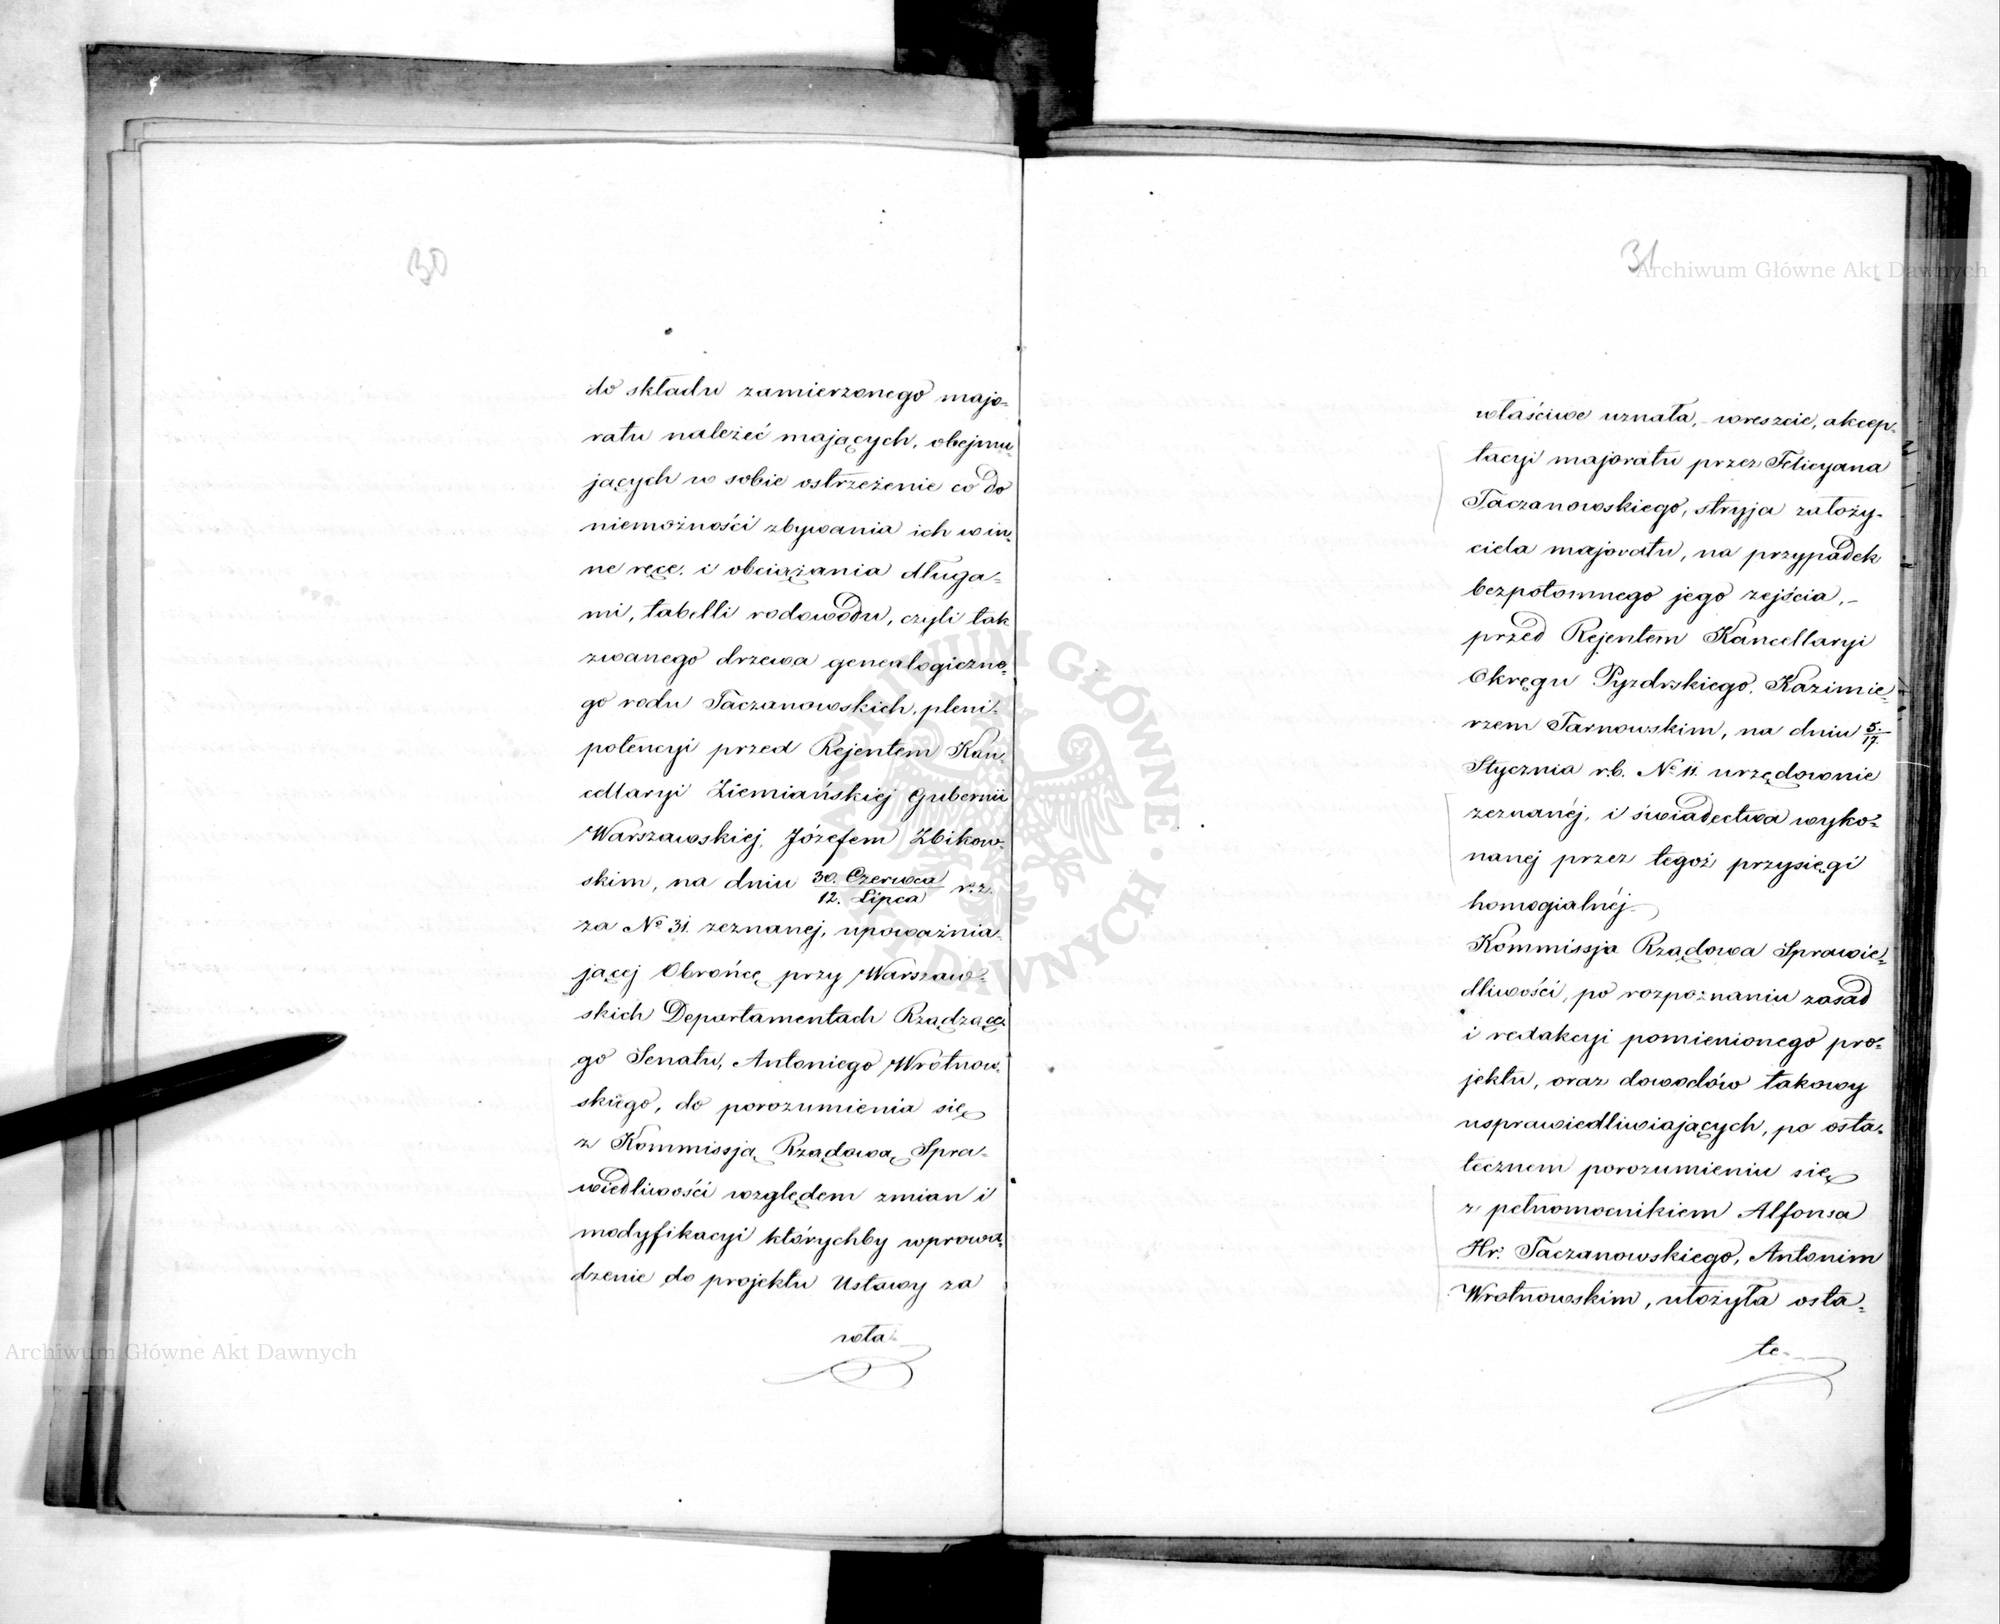 30
do składu zamierzonego majo-
ratu należeć mających, obejmu-
jących w sobie ostrzeżenie co do
niemożności zbywania ich w in-
ne ręce, i obciążania długa-
mi, tabelli rodowodu, czyli tak
zwanego drzewa genealogiczne-
go rodu Taczanowskich, pleni-
potencyi przed Rejentem Kan-
cellaryi Ziemiańskiej Gubernii
Warszawskiej, Józefem Zbikow-
skim, na dniu 30. Czerwca/12. Lipca r.z.
za No 31. zeznanej, upoważnia-
jącej Obrońcę przy Warszaw-
skich Departamentach Rządzące-
go Senatu, Antoniego Wrotnow-
skiego, do porozumienia się
z Kommissją Rządową Spra-
wiedliwości względem zmian i
modyfikacyi którychby wprowa-
dzenie do projektu Ustawy za
wła-
31
właściwe uznała, - wreszcie, akcep-
tacyi majoratu przez Felicyana
Taczanowskiego, stryja założy-
ciela majoratu, na przypadek
bezpotomnego jego zejścia, -
przed Rejentem Kancellaryi
Okręgu Pyzdrskiego, Kazimie-
rzem Tarnowskim, na dniu 5./17.
Stycznia r.b. No 11. urzędownie
zeznanéj, i świadectwa wyko-
nanej przez tegoż przysięgi
homagialnéj.
Kommissja Rządowa Sprawie-
dliwości, po rozpoznaniu zasad
i redakcyi pomienionego pro-
jektu, oraz dowodów takowy
usprawiedliwiających, po osta-
tecznem porozumieniu się
z pełnomocnikiem Alfonsa
Hr. Taczanowskiego, Antonim
Wrotnowskim, ułożyła osta-
te-
Archiwum Główne Akt Dawnych
Archiwum Główne Akt Dawnych
ARCHIWUM GŁÓWNE AKT DAWNYCH